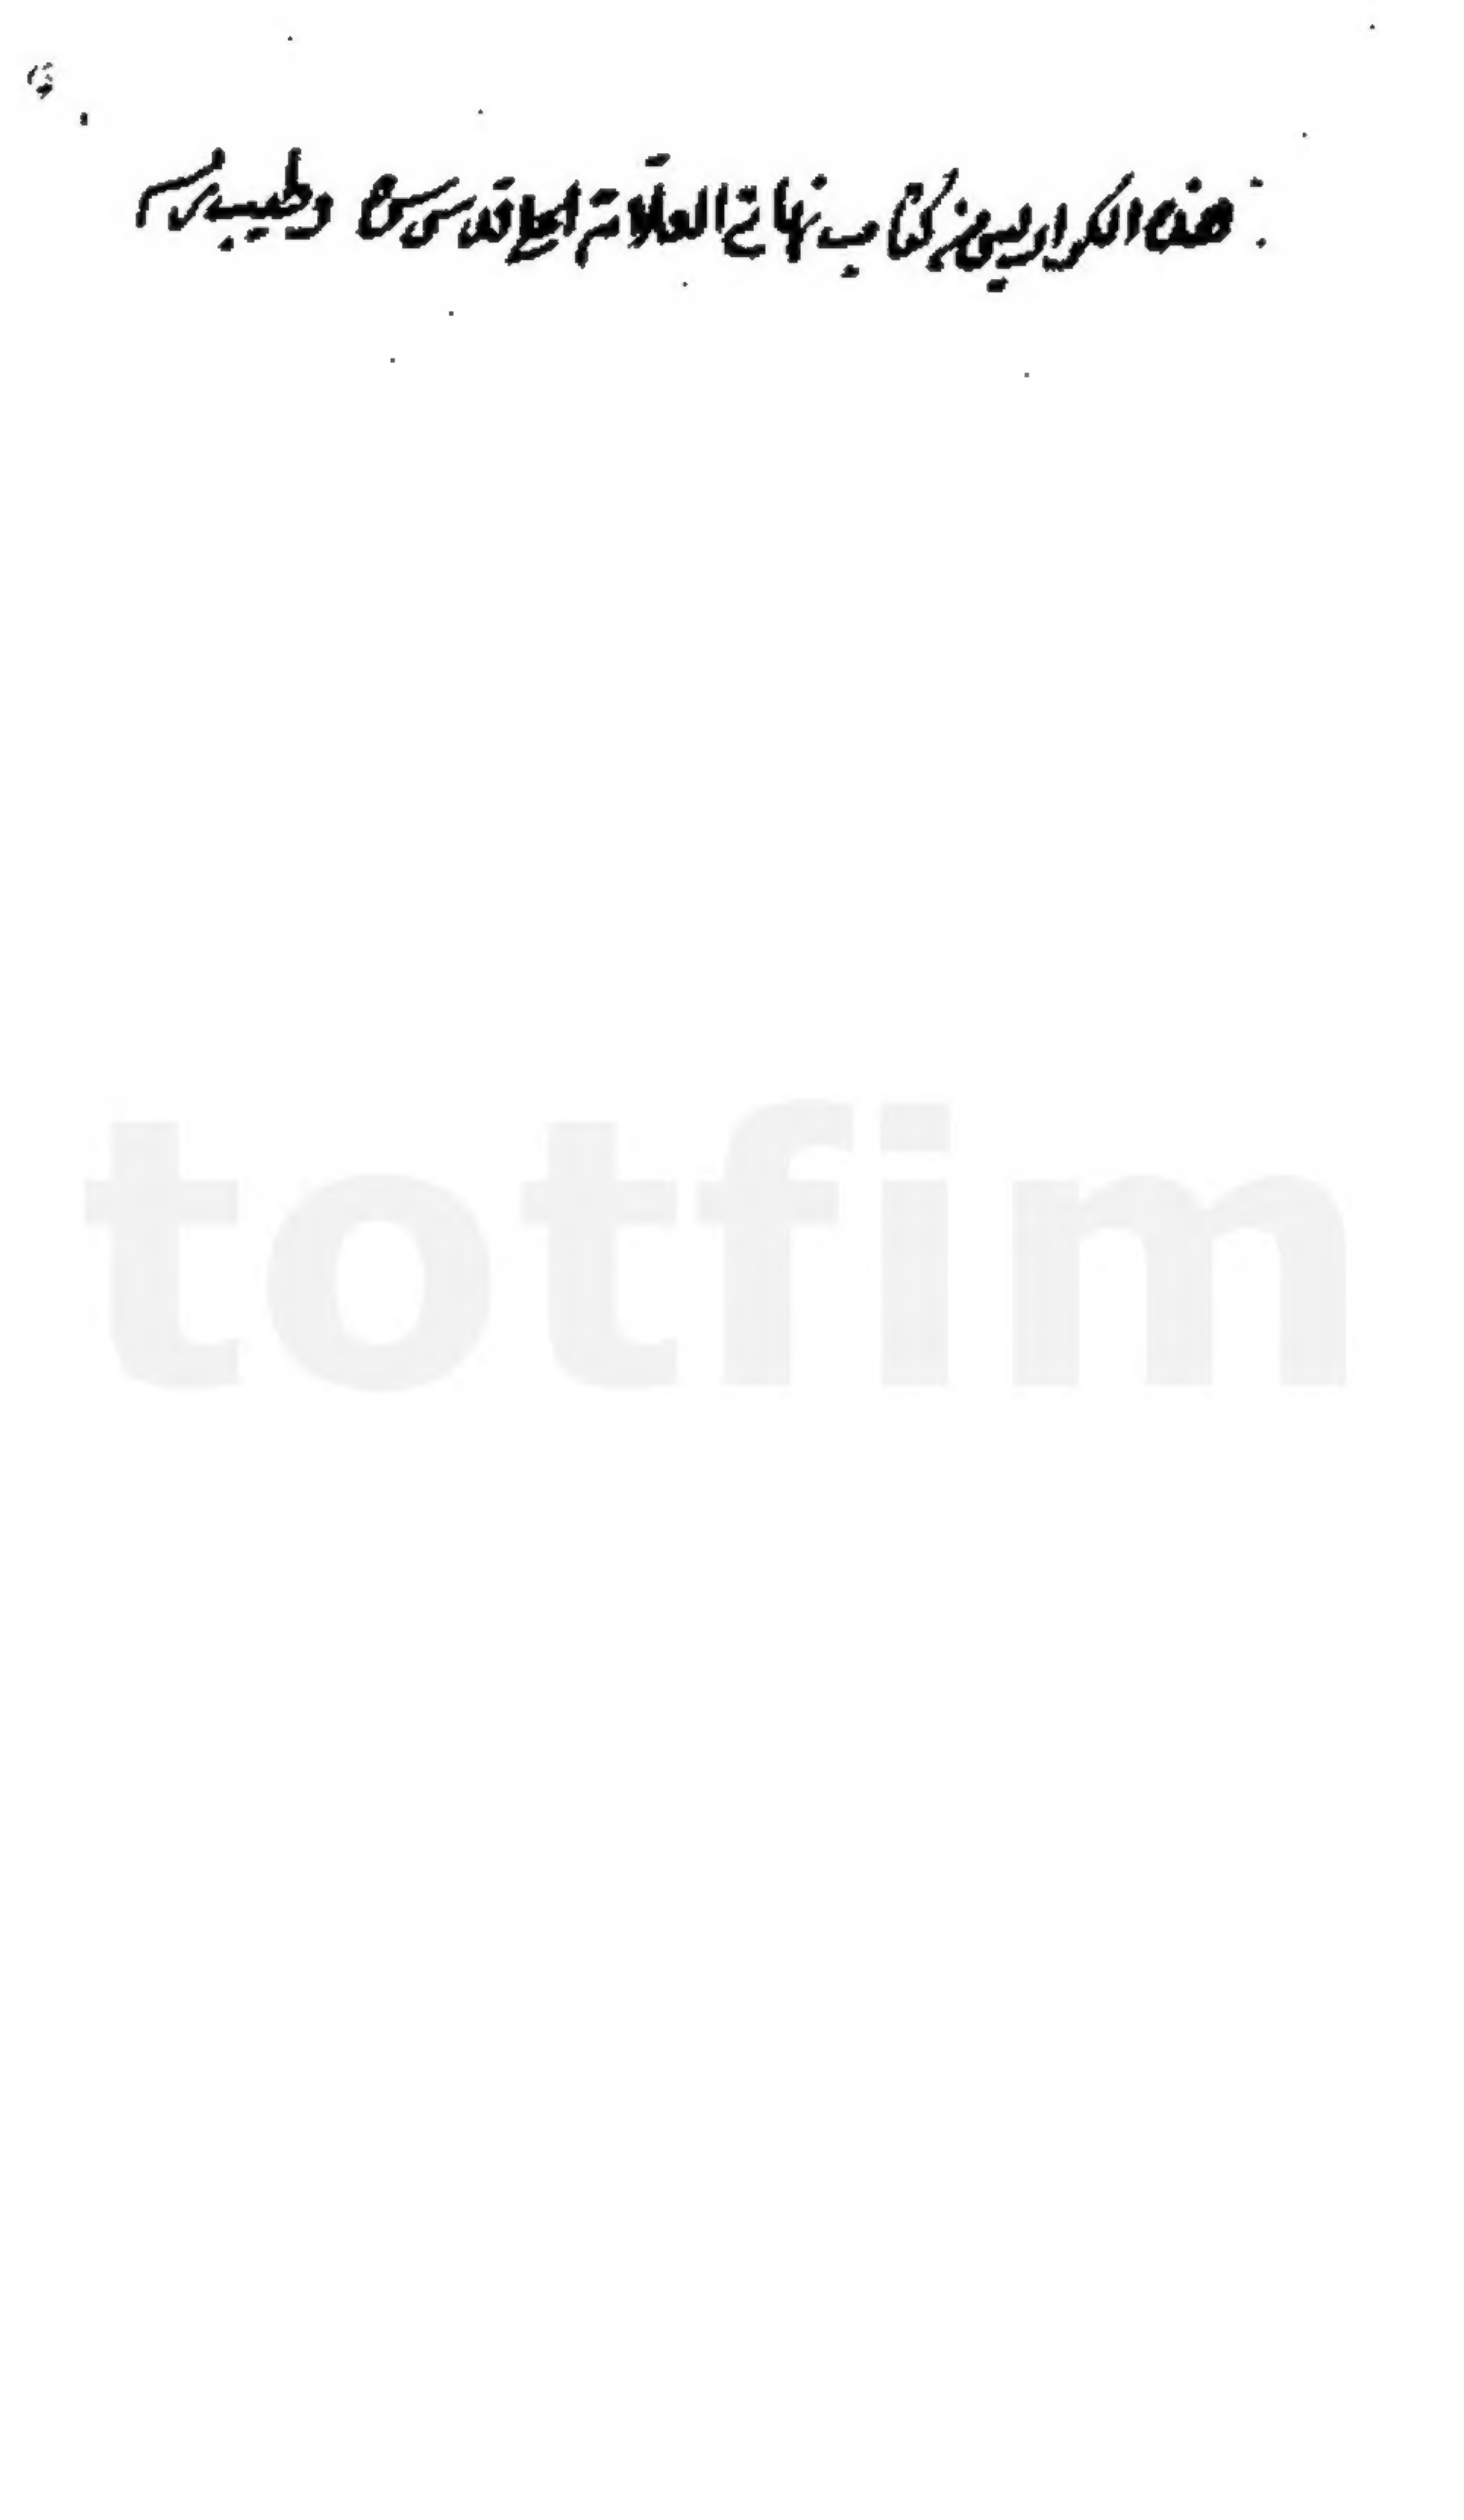 هذه الكراريس من كتاب نهاية العلامة الحلي قدس سره
totfim